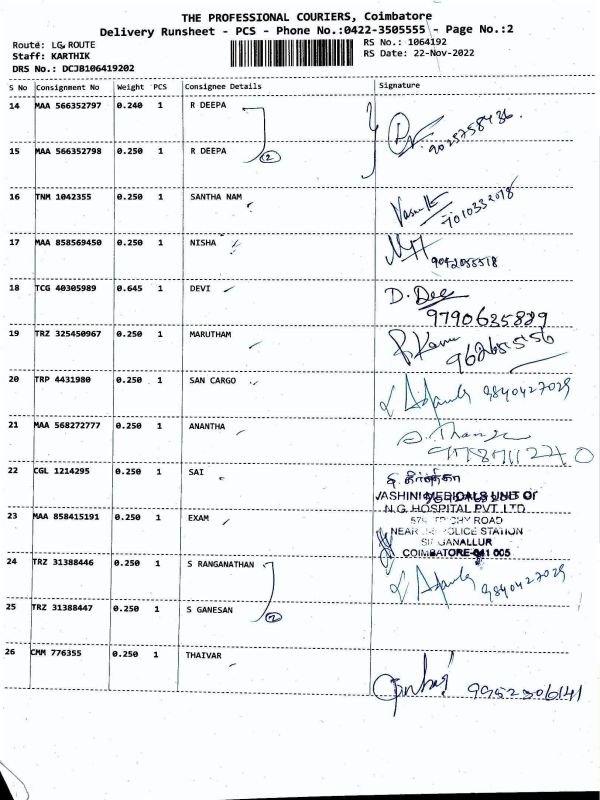 THE PROFESSIONAL COURIERS, Coimbatore
Delivery Runsheet - PCS - Phone No.:0422-3505555 - Page No.:2
Route: LG ROUTE
Staff: KARTHIK
DRS No.: DCJB106419202
RS No.: 1064192
RS Date: 22-Nov-2022
S No Consignment No Weight PCS Consignee Details Signature
14 MAA 566352797 0.240 1 R DEEPA 9025758436.
15 MAA 566352798 0.250 1 R DEEPA 2
16 TNM 1042355 0.250 1 SANTHA NAM 7010332078
17 MAA 858569450 0.250 1 NISHA
18 TCG 40305989 0.645 1 DEVI D. Dee
9790635889
19 TRZ 325450967 0.250 1 MARUTHAM
20 TRP 4431980 0.250 1 SAN CARGO 9840427029
21 MAA 568272777 0.250 1 ANANTHA
22 CGL 1214295 0.250 1 SAI
VASHINI MEDICALS UNIT OF
N.G. HOSPITAL PVT. LTD
23 MAA 858415191 0.250 1 EXAM
ROAD
NEAR POLICE STATION
COIMBATORE-641 005
24 TRZ 31388446 0.250 1 S RANGANATHAN 9840427029
25 TRZ 31388447 0.250 1 S GANESAN 2
26 CMM 776355 0.250 1 THAIVAR
9952306141